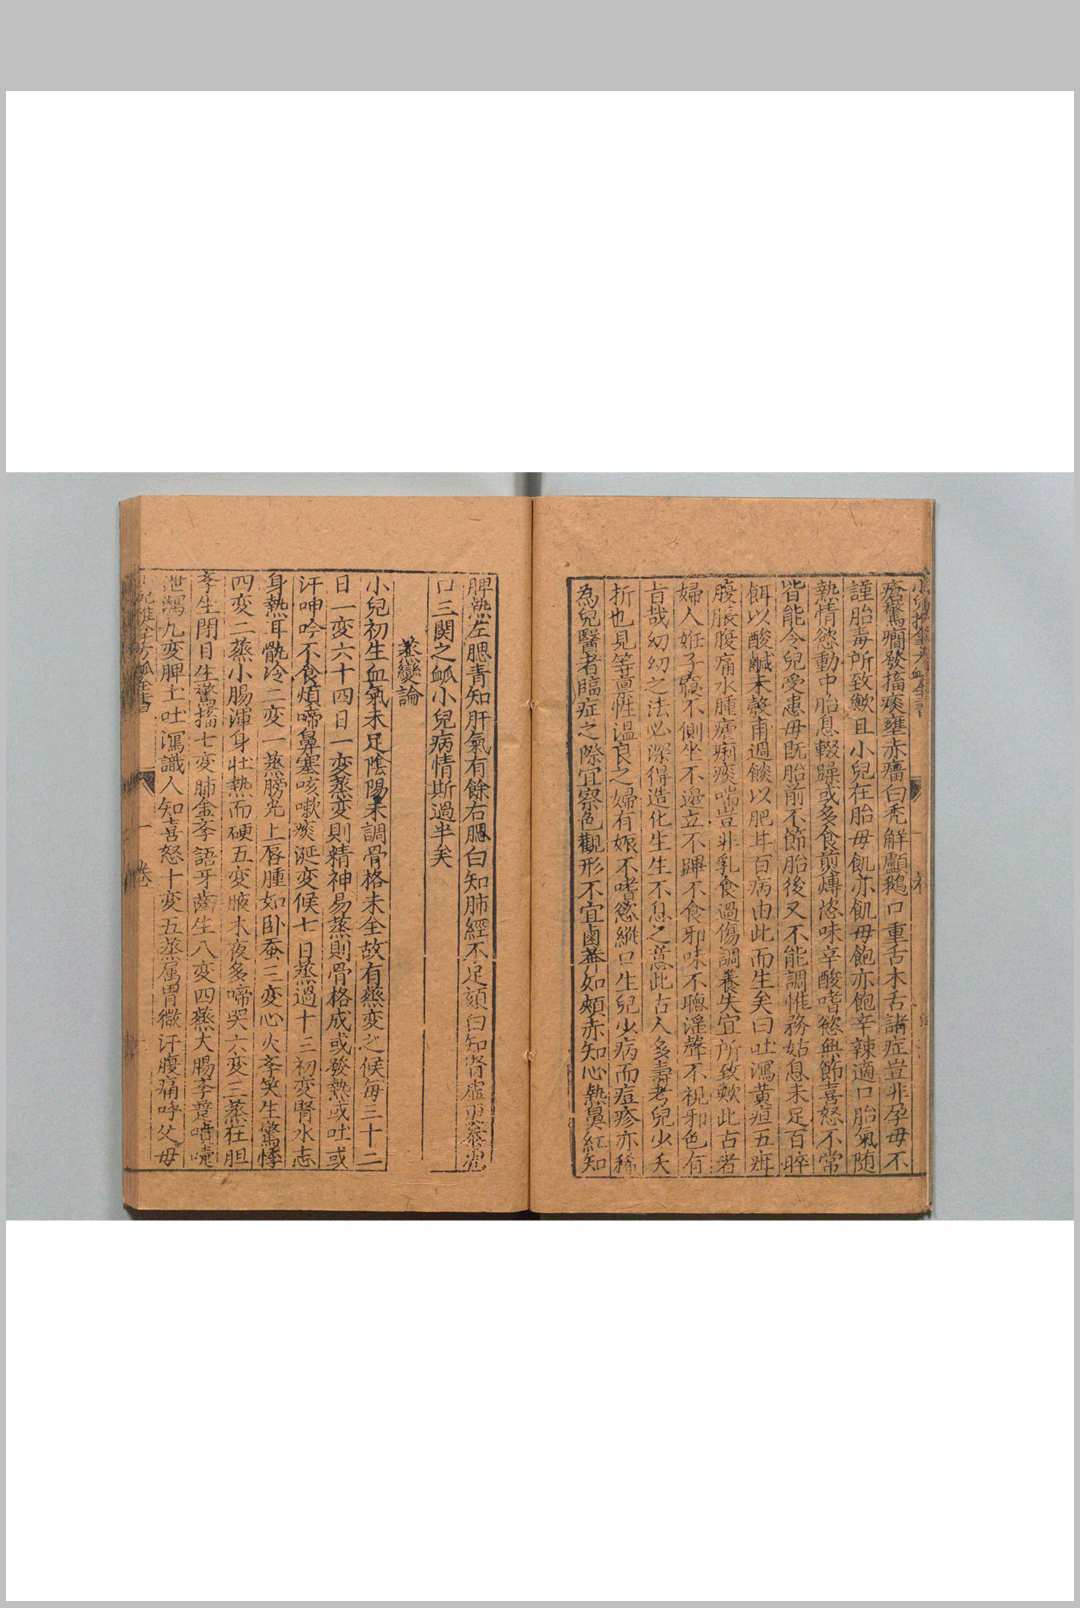 瘡驚癇發搐痰壅赤瘤白禿解顱鵝口重舌木舌諸症豈非孕母不
謹胎毒所致歟且小兒在胎母飢亦飢母飽亦飽辛辣適口胎氣随
熱情慾動中胎息輙躁或多食煎煿恣味辛酸嗜慾無節喜怒不常
皆能令兒受患母旣胎前不節胎後又不能調惟務姑息未足百晬
餌以酸鹹未幾甫週餤以肥甘百病由此而生矣曰吐瀉黃疸五疳
腹脹腹痛水腫瘧痢痰喘豈非乳食過傷調養失宜所致歟此古者
婦人姙子寢不側坐不邊立不蹕不食邪味不聽淫聲不視邪色有
旨哉幼幼之法必深得造化生生不息之意此古人多壽考兒少夭
折也見等慎性溫良之婦有娠不嗜慾縱口生兒少病而痘疹亦稀
為兒醫者臨症之際宜察色觀形不宜鹵莽如頰赤知心熱鼻紅知
脾熱左腮青知肝氣有餘右腮白知肺經不足頦白知腎虛更參虎
口三関之脉小兒病情斯過半矣
蒸變論
小兒初生血氣未足陰陽未調骨格未全故有蒸变之候每三十二
日一变六十四日一变蒸变則精神易蒸則骨格成或發熱或吐或
汗呻吟不食煩啼鼻塞咳嗽痰涎变候七日蒸過十三初变腎水志
身熱耳骩冷二变一蒸膀光上唇腫如卧蚕三变心火孝笑生驚悸
四变二蒸小腸渾身壮熱而硬五变腋木夜多啼哭六变三蒸在胆
孝生閉目生驚搐七变肺金孝語牙齒生八变四蒸大腸孝楚噴嚏
泄瀉九变脾土吐瀉識人知喜怒十变五蒸属胃微汗腹痛呼父母
卷一